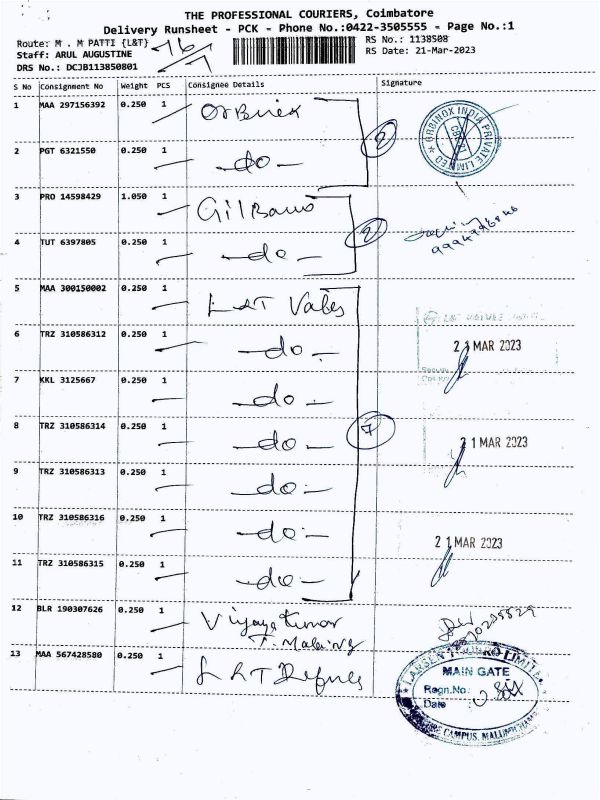 THE PROFESSIONAL COURIERS, Coimbatore
Delivery Runsheet - PCK - Phone No.:0422-3505555 - Page No.:1
Route: M . M PATTI {L&T}
RS No.: 1138508
Staff: ARUL AUGUSTINE
RS Date: 21-Mar-2023
DRS No.: DCJB113850801
S No Consignment No Weight PCS Consignee Details Signature
1 MAA 297156392 0.250 1
ORBINOX INDIA PRIVATE LIMITED
2
2 PGT 6321550 0.250 1 -do-
3 PRO 14598429 1.050 1
2
4 TUT 6397805 0.250 1 -do-
5 MAA 300150002 0.250 1 L&T Valves
6 TRZ 310586312 0.250 1 -do- 21 MAR 2023
7 KKL 3125667 0.250 1 -do-
8 TRZ 310586314 0.250 1 -do- 7 21 MAR 2023
9 TRZ 310586313 0.250 1 -do-
10 TRZ 310586316 0.250 1 -do- 21 MAR 2023
11 TRZ 310586315 0.250 1 -do-
12 BLR 190307626 0.250 1 Vijaya Kumar
13 MAA 567428580 0.250 1 L&T Defence
MAIN GATE
Regn.No:
Date